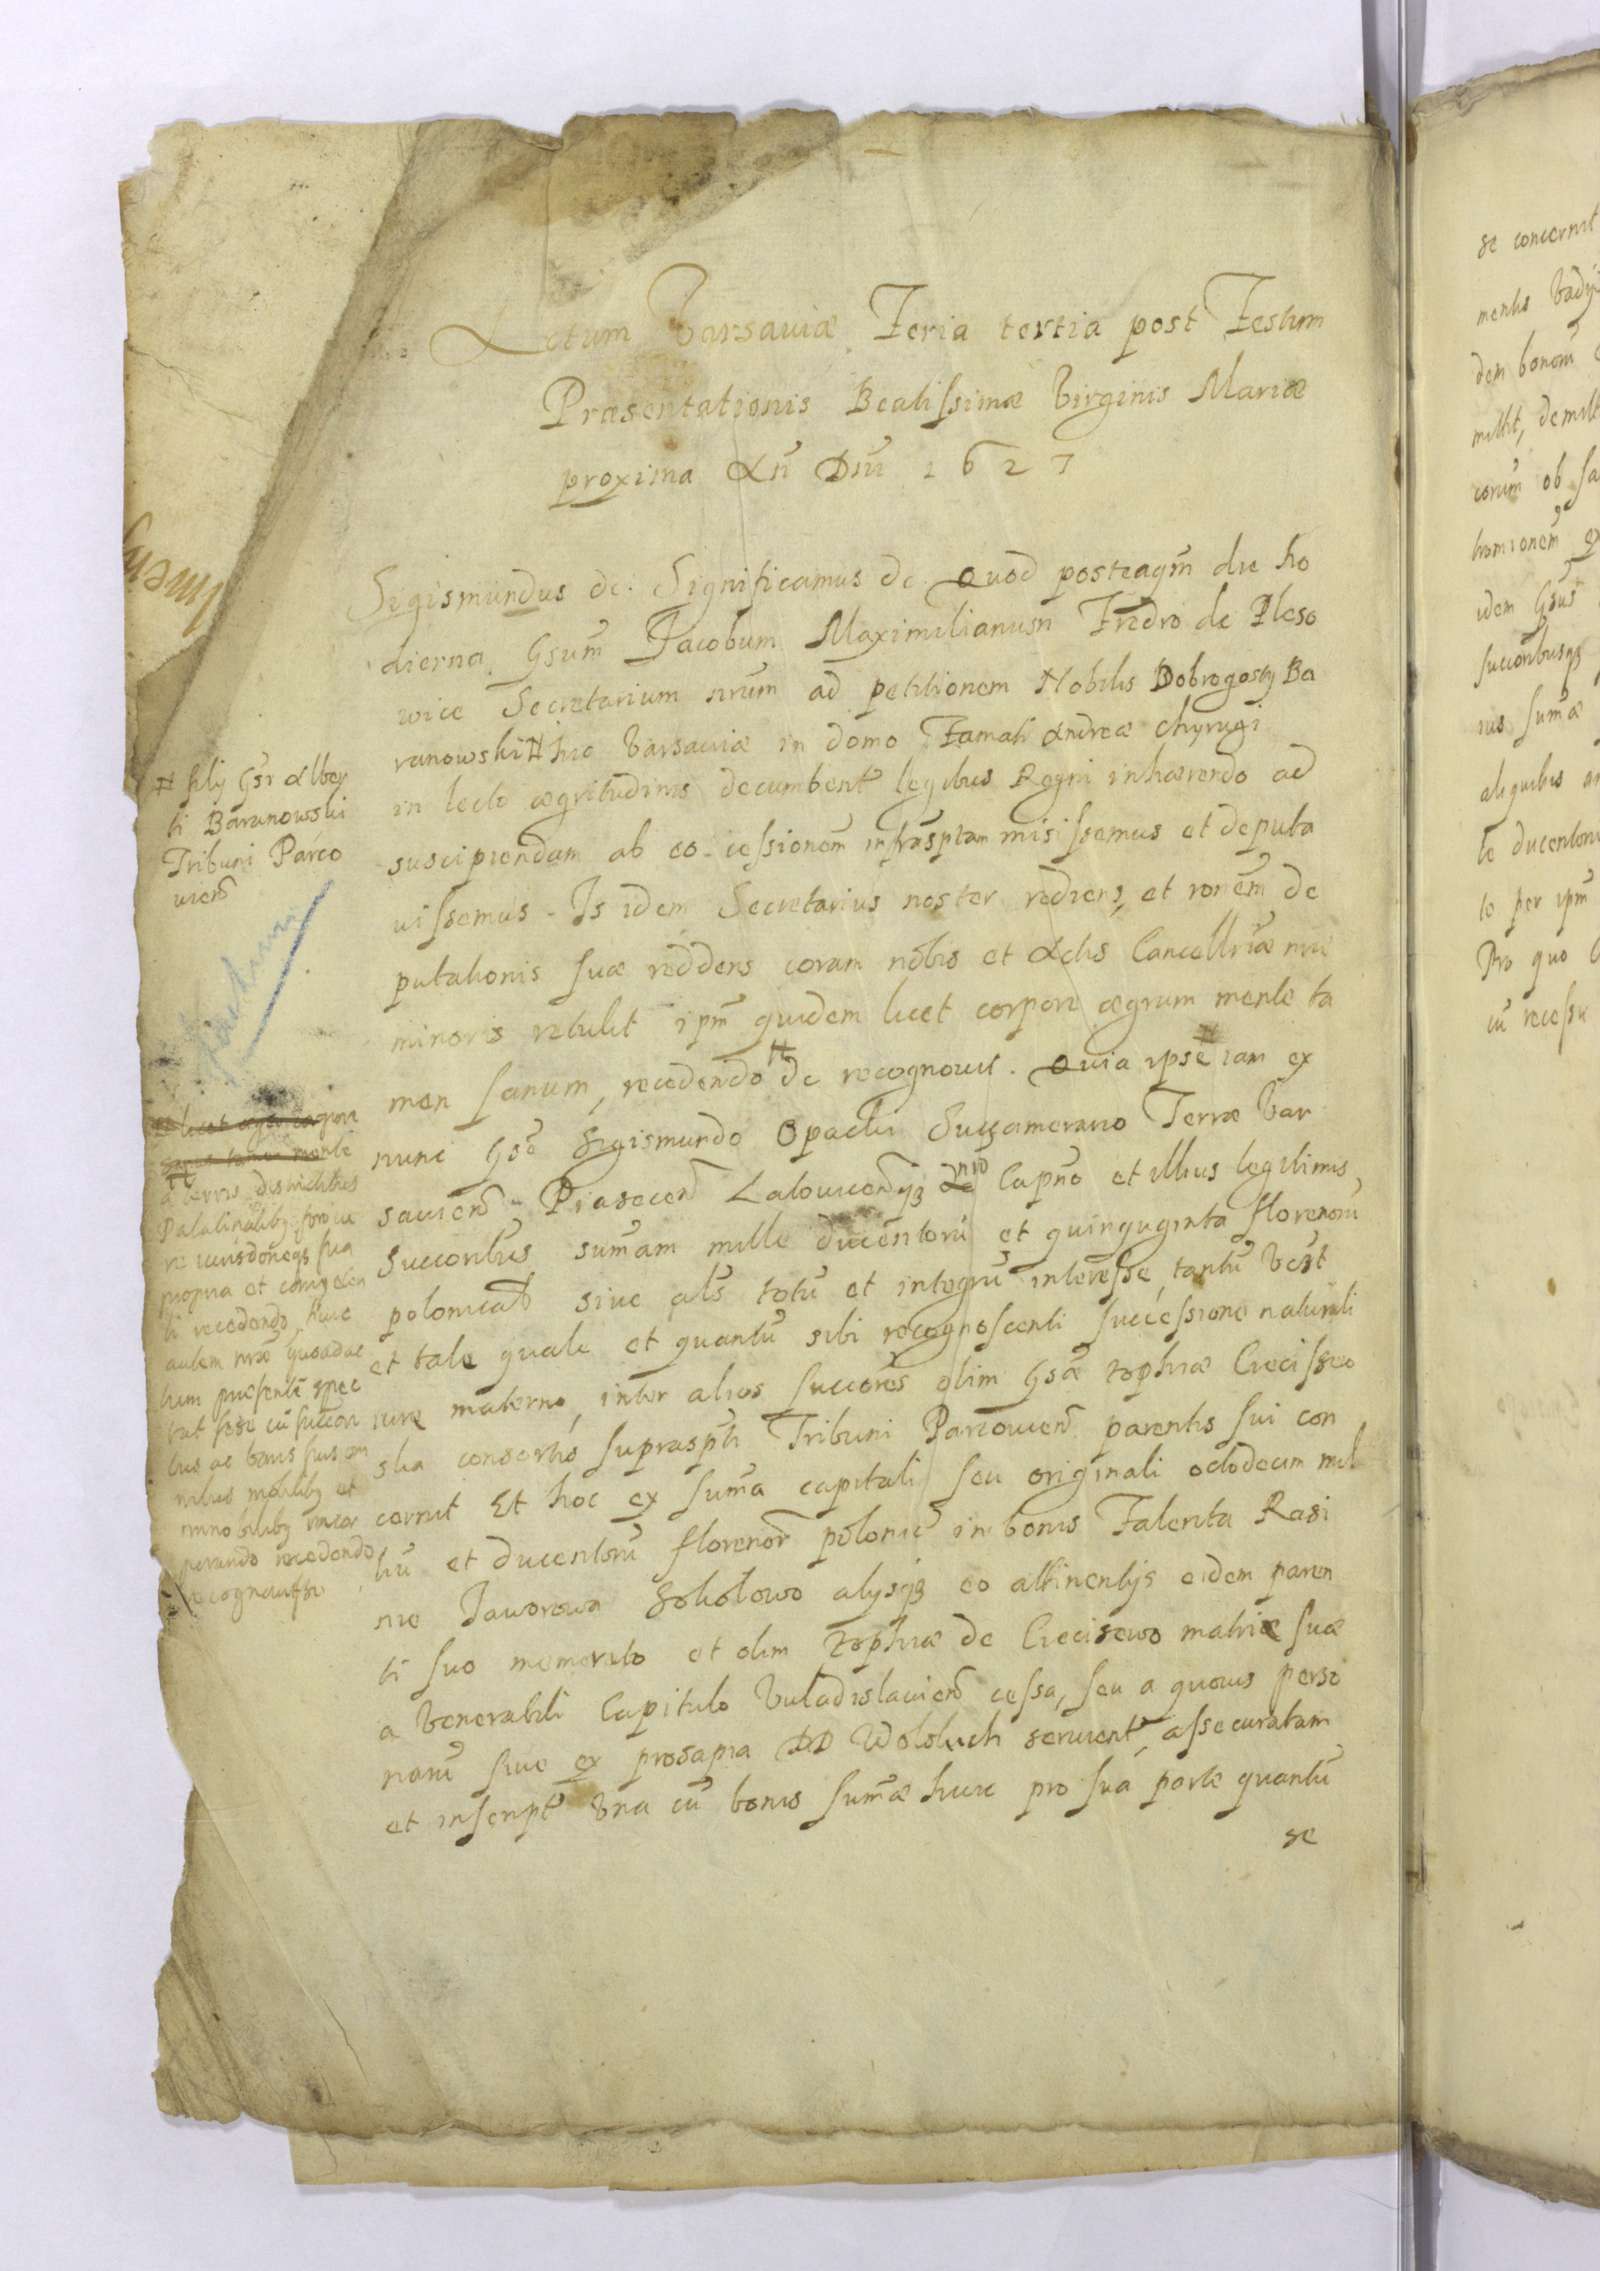 Actum Varsaviæ Feria tertia post Festum
Præsentationis Beatissimæ Virginis Mariæ
proxima An̄ Dn̄i 1627
Sigismundus dc. Significamus dc. Quod posteaqm̄ die ho
dierna Gsum̄ Jacobum Maximilianum Fredro de Pleso
wice Secretarium nrūm ad petitionem Nobilis Dobrogosty Ba
ranowski # hic Varsaviæ in domo Famati Andreæ Chyrugi
in lecto ægritudinis decumbent̄ legibus Regni inhærendo ad
suscipiendam ab eo cessionem infrasp̄tam misissemus et deputa
uissemus. Is idem Secretarius noster rediens, et ronēm de
putationis suæ reddens coram nobis et Actis Cancellriæ nrae
minoris retulit ipm̄ quidem licet corpore ægrum mente ta
men sanum, recedendo # dc recognouit. Quia ipse iam ex
nunc Gsō Sigismundo Opacki Succamerario Terræ Var
sauien̄ Piasecen̄ Latouicen̄qꝫ nrō Capn̄o et illius legitimis
Succoribus sum̄am mille ducentorū et quinquginta florenorū
polonicaꝭ siue als̄ totū et integrū interesse, tantū
et tale quale et quantū sibi recognoscenti successione naturali
iure materno, inter alios succores olim Gsæ Zophiæ Cieciszeo
skia consortis suprasp̄ti Tribuni Parcouien̄ parentis sui con
cernit Et hoc ex sum̄a capitali seu originali octodecim mil
liū et ducentorū florenor̄ polonic̄ in bonis Falenta Rasi
nie Jaworowa Sokolowo alysqꝫ eo attinentys eidem paren
ti suo memorato et olim Zophiæ de Ciecisewo matriæ suæ
a Venerabili Capitulo Vuladislauien̄ cessa, seu a quouis perso
narū siue ex prosapia DD Wolsluch seruient̄ assecuratam
et inscript̄ Vna cū bonis sum̄æ huic pro sua parte quantū
se
# fily Gsi Alber
ti Baranowski
Tribuni Parco
uien̄
# a terris districtibus
Palatinatibꝫ foro ue
re iurisdoneqꝫ sua
propria et competen
ti recedendo, huic
autem nræ quoad ac
tum præsentē spec
tat sese cū succori
bus ac bonis suis om
nibus mobilibꝫ et
immobilibꝫ incor
porando recedendo
recognouitse
se concernit
mentis Vady
dem bonorū
mittit, demitt
corum ob sa
idem Gsus
succoribusqꝫ
ius sum̄æ
aliquibus
te ducentoru
to per ipm̄
Pro quo
cū recessu